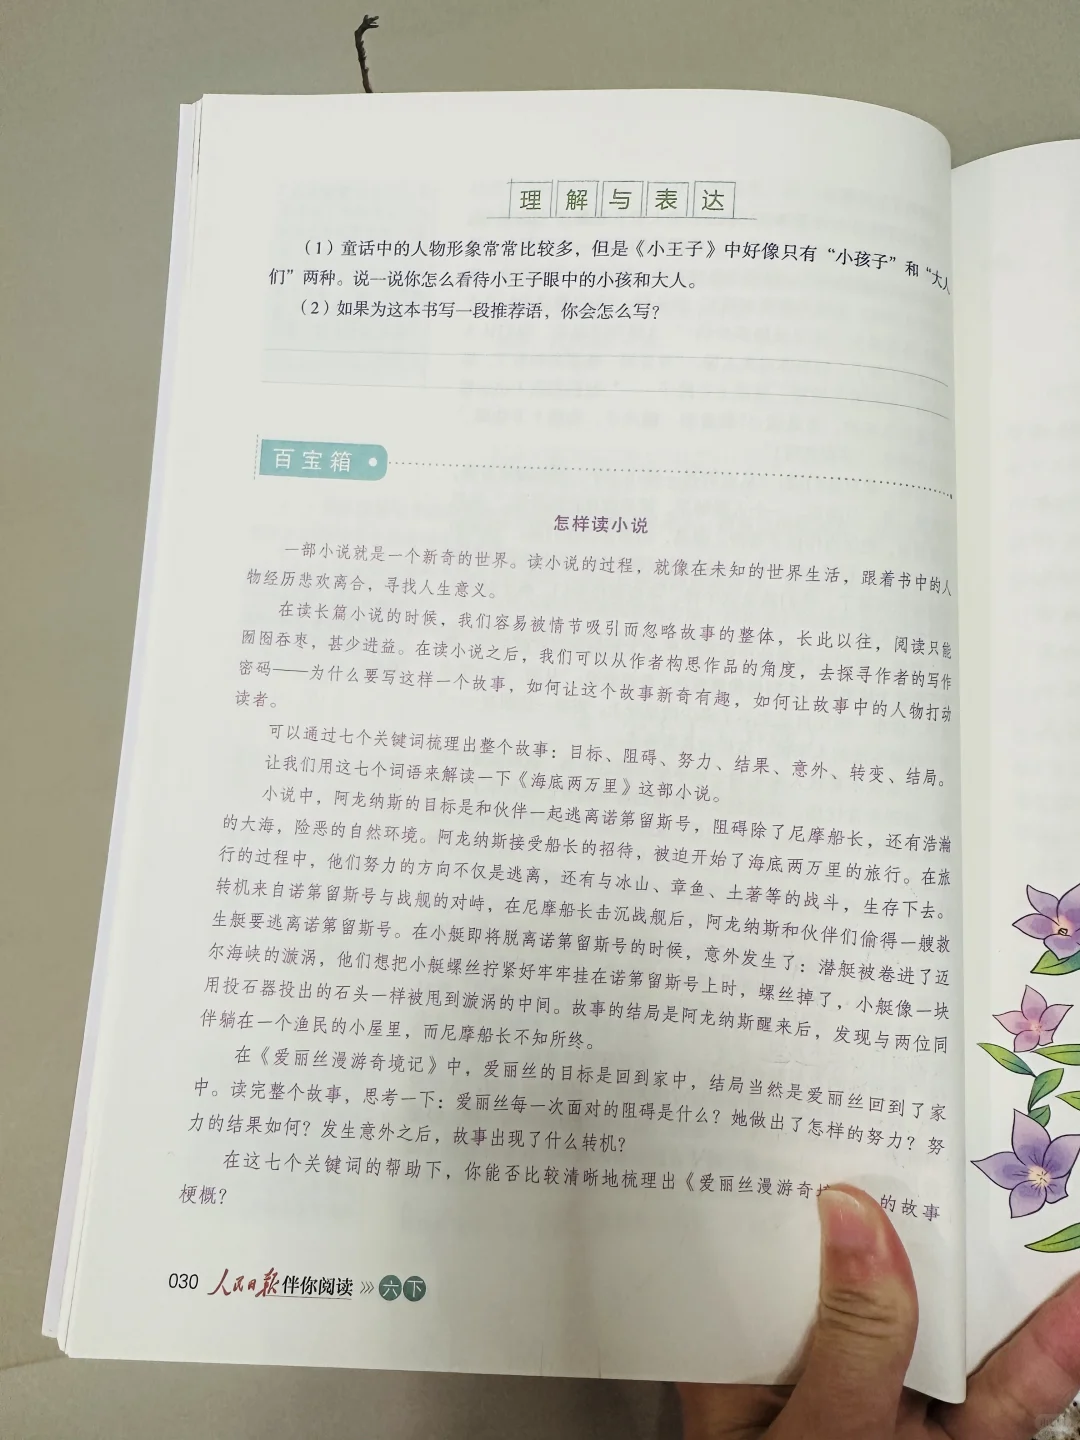 理解与表达
（1）童话中的人物形象常常比较多，但是《小王子》中好像只有“小孩子”和“大人
们”两种。说一说你怎么看待小王子眼中的小孩和大人。
（2）如果为这本书写一段推荐语，你会怎么写？
百宝箱
怎样读小说
一部小说就是一个新奇的世界。读小说的过程，就像在未知的世界生活，跟着书中的人
物经历悲欢离合，寻找人生意义。
在读长篇小说的时候，我们容易被情节吸引而忽略故事的整体，长此以往，阅读只能
囫囵吞枣，甚少进益。在读小说之后，我们可以从作者构思作品的角度，去探寻作者的写作
密码——为什么要写这样一个故事，如何让这个故事新奇有趣，如何让故事中的人物打动
读者。
可以通过七个关键词梳理出整个故事：目标、阻碍、努力、结果、意外、转变、结局。
让我们用这七个词语来解读一下《海底两万里》这部小说。
小说中，阿龙纳斯的目标是和伙伴一起逃离诺第留斯号，阻碍除了尼摩船长，还有浩瀚
的大海，险恶的自然环境。阿龙纳斯接受船长的招待，被迫开始了海底两万里的旅行。在旅
行的过程中，他们努力的方向不仅是逃离，还有与冰山、章鱼、土著等的战斗，生存下去。
转机来自诺第留斯号与战舰的对峙，在尼摩船长击沉战舰后，阿龙纳斯和伙伴们偷得一艘救
生艇要逃离诺第留斯号。在小艇即将脱离诺第留斯号的时候，意外发生了：潜艇被卷进了迈
尔海峡的漩涡，他们想把小艇螺丝拧紧好牢牢挂在诺第留斯号上时，螺丝掉了，小艇像一块
用投石器投出的石头一样被甩到漩涡的中间。故事的结局是阿龙纳斯醒来后，发现与两位同
伴躺在一个渔民的小屋里，而尼摩船长不知所终。
在《爱丽丝漫游奇境记》中，爱丽丝的目标是回到家中，结局当然是爱丽丝回到了家
中。读完整个故事，思考一下：爱丽丝每一次面对的阻碍是什么？她做出了怎样的努力？努
力的结果如何？发生意外之后，故事出现了什么转机？
在这七个关键词的帮助下，你能否比较清晰地梳理出《爱丽丝漫游奇 的故事
梗概？
030 人民日报伴你阅读 》》》六下